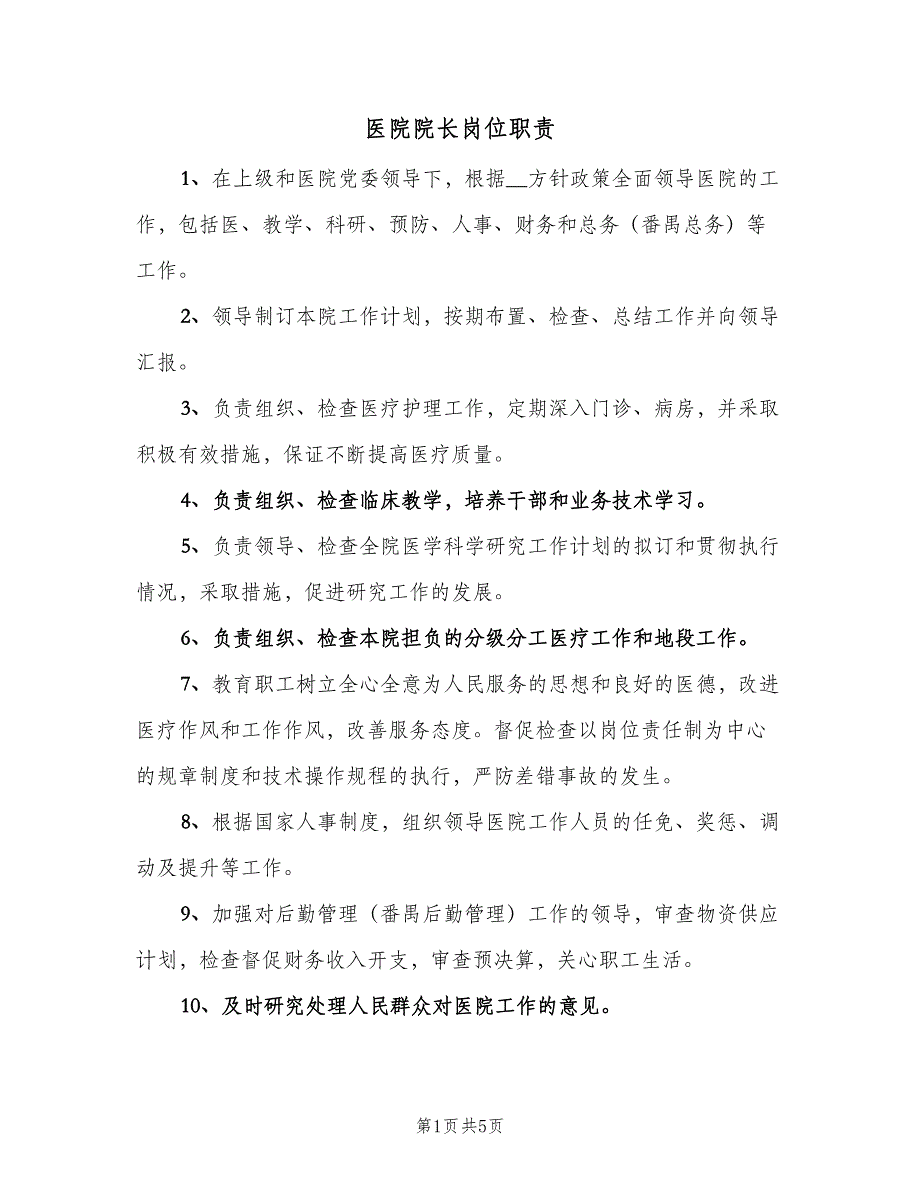 医院院长岗位职责
1、在上级和医院党委领导下，根据__方针政策全面领导医院的工
作，包括医、教学、科研、预防、人事、财务和总务（番禺总务）等
工作。
2、领导制订本院工作计划，按期布置、检查、总结工作并向领导
汇报。
3、负责组织、检查医疗护理工作，定期深入门诊、病房，并采取
积极有效措施，保证不断提高医疗质量。
4、负责组织、检查临床教学，培养干部和业务技术学习。
5、负责领导、检查全院医学科学研究工作计划的拟订和贯彻执行
情况，采取措施，促进研究工作的发展。
6、负责组织、检查本院担负的分级分工医疗工作和地段工作。
7、教育职工树立全心全意为人民服务的思想和良好的医德，改进
医疗作风和工作作风，改善服务态度。督促检查以岗位责任制为中心
的规章制度和技术操作规程的执行，严防差错事故的发生。
8、根据国家人事制度，组织领导医院工作人员的任免、奖惩、调
动及提升等工作。
9、加强对后勤管理（番禺后勤管理）工作的领导，审查物资供应
计划，检查督促财务收入开支，审查预决算，关心职工生活。
10、及时研究处理人民群众对医院工作的意见。
第1页共5页